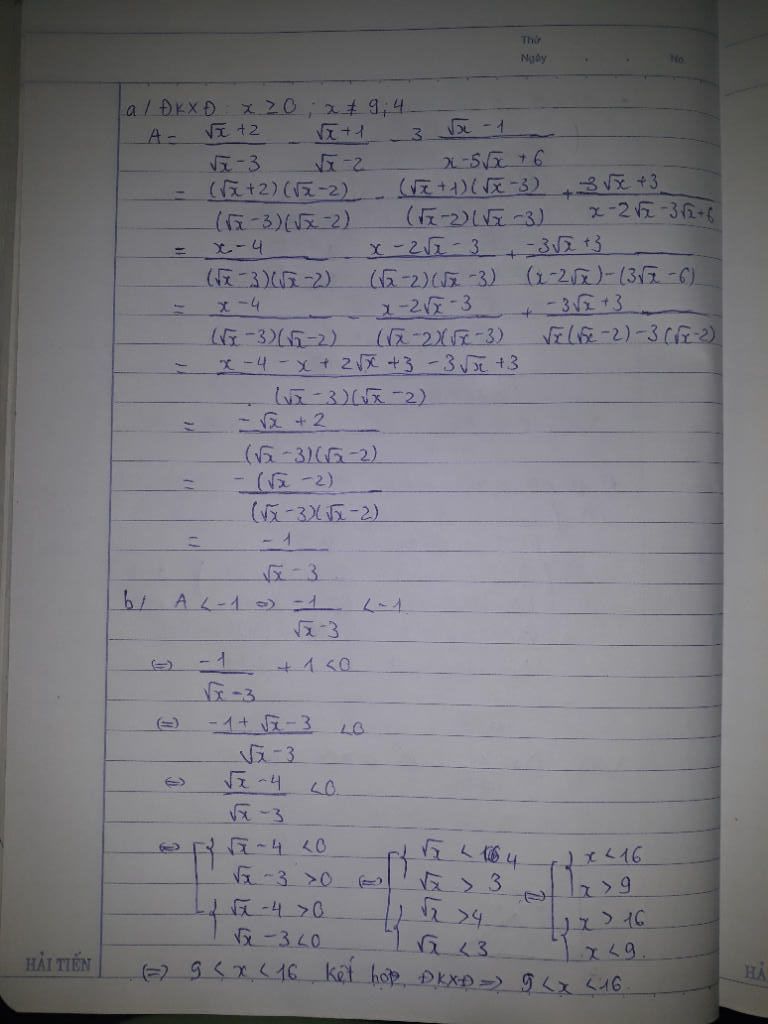 Thứ
Ngày . . No.
a/ ĐKXĐ: x ≥ 0 ; x ≠ 9; 4
A = (√x + 2)/(√x - 3) - (√x + 1)/(√x - 2) - 3 (√x - 1)/(x - 5√x + 6)
= ((√x + 2)(√x - 2))/((√x - 3)(√x - 2)) - ((√x + 1)(√x - 3))/((√x - 2)(√x - 3)) + (-3√x + 3)/(x - 2√x - 3√x + 6)
= (x - 4)/((√x - 3)(√x - 2)) - (x - 2√x - 3)/((√x - 2)(√x - 3)) + (-3√x + 3)/((x - 2√x) - (3√x - 6))
= (x - 4)/((√x - 3)(√x - 2)) - (x - 2√x - 3)/((√x - 2)(√x - 3)) + (-3√x + 3)/(√x(√x - 2) - 3(√x - 2))
= (x - 4 - x + 2√x + 3 - 3√x + 3)/((√x - 3)(√x - 2))
= (-√x + 2)/((√x - 3)(√x - 2))
= (-(√x - 2))/((√x - 3)(√x - 2))
= (-1)/(√x - 3)
b/ A < -1 => (-1)/(√x - 3) < -1
<=> (-1)/(√x - 3) + 1 < 0
<=> (-1 + √x - 3)/(√x - 3) < 0
<=> (√x - 4)/(√x - 3) < 0
<=> [ { √x - 4 < 0 [ { √x < 4 [ { x < 16
√x - 3 > 0 <=> √x > 3 <=> x > 9
{ √x - 4 > 0 { √x > 4 { x > 16
√x - 3 < 0 √x < 3 x < 9
HẢI TIẾN
<=> 9 < x < 16 Kết hợp ĐKXĐ => 9 < x < 16.
HẢ